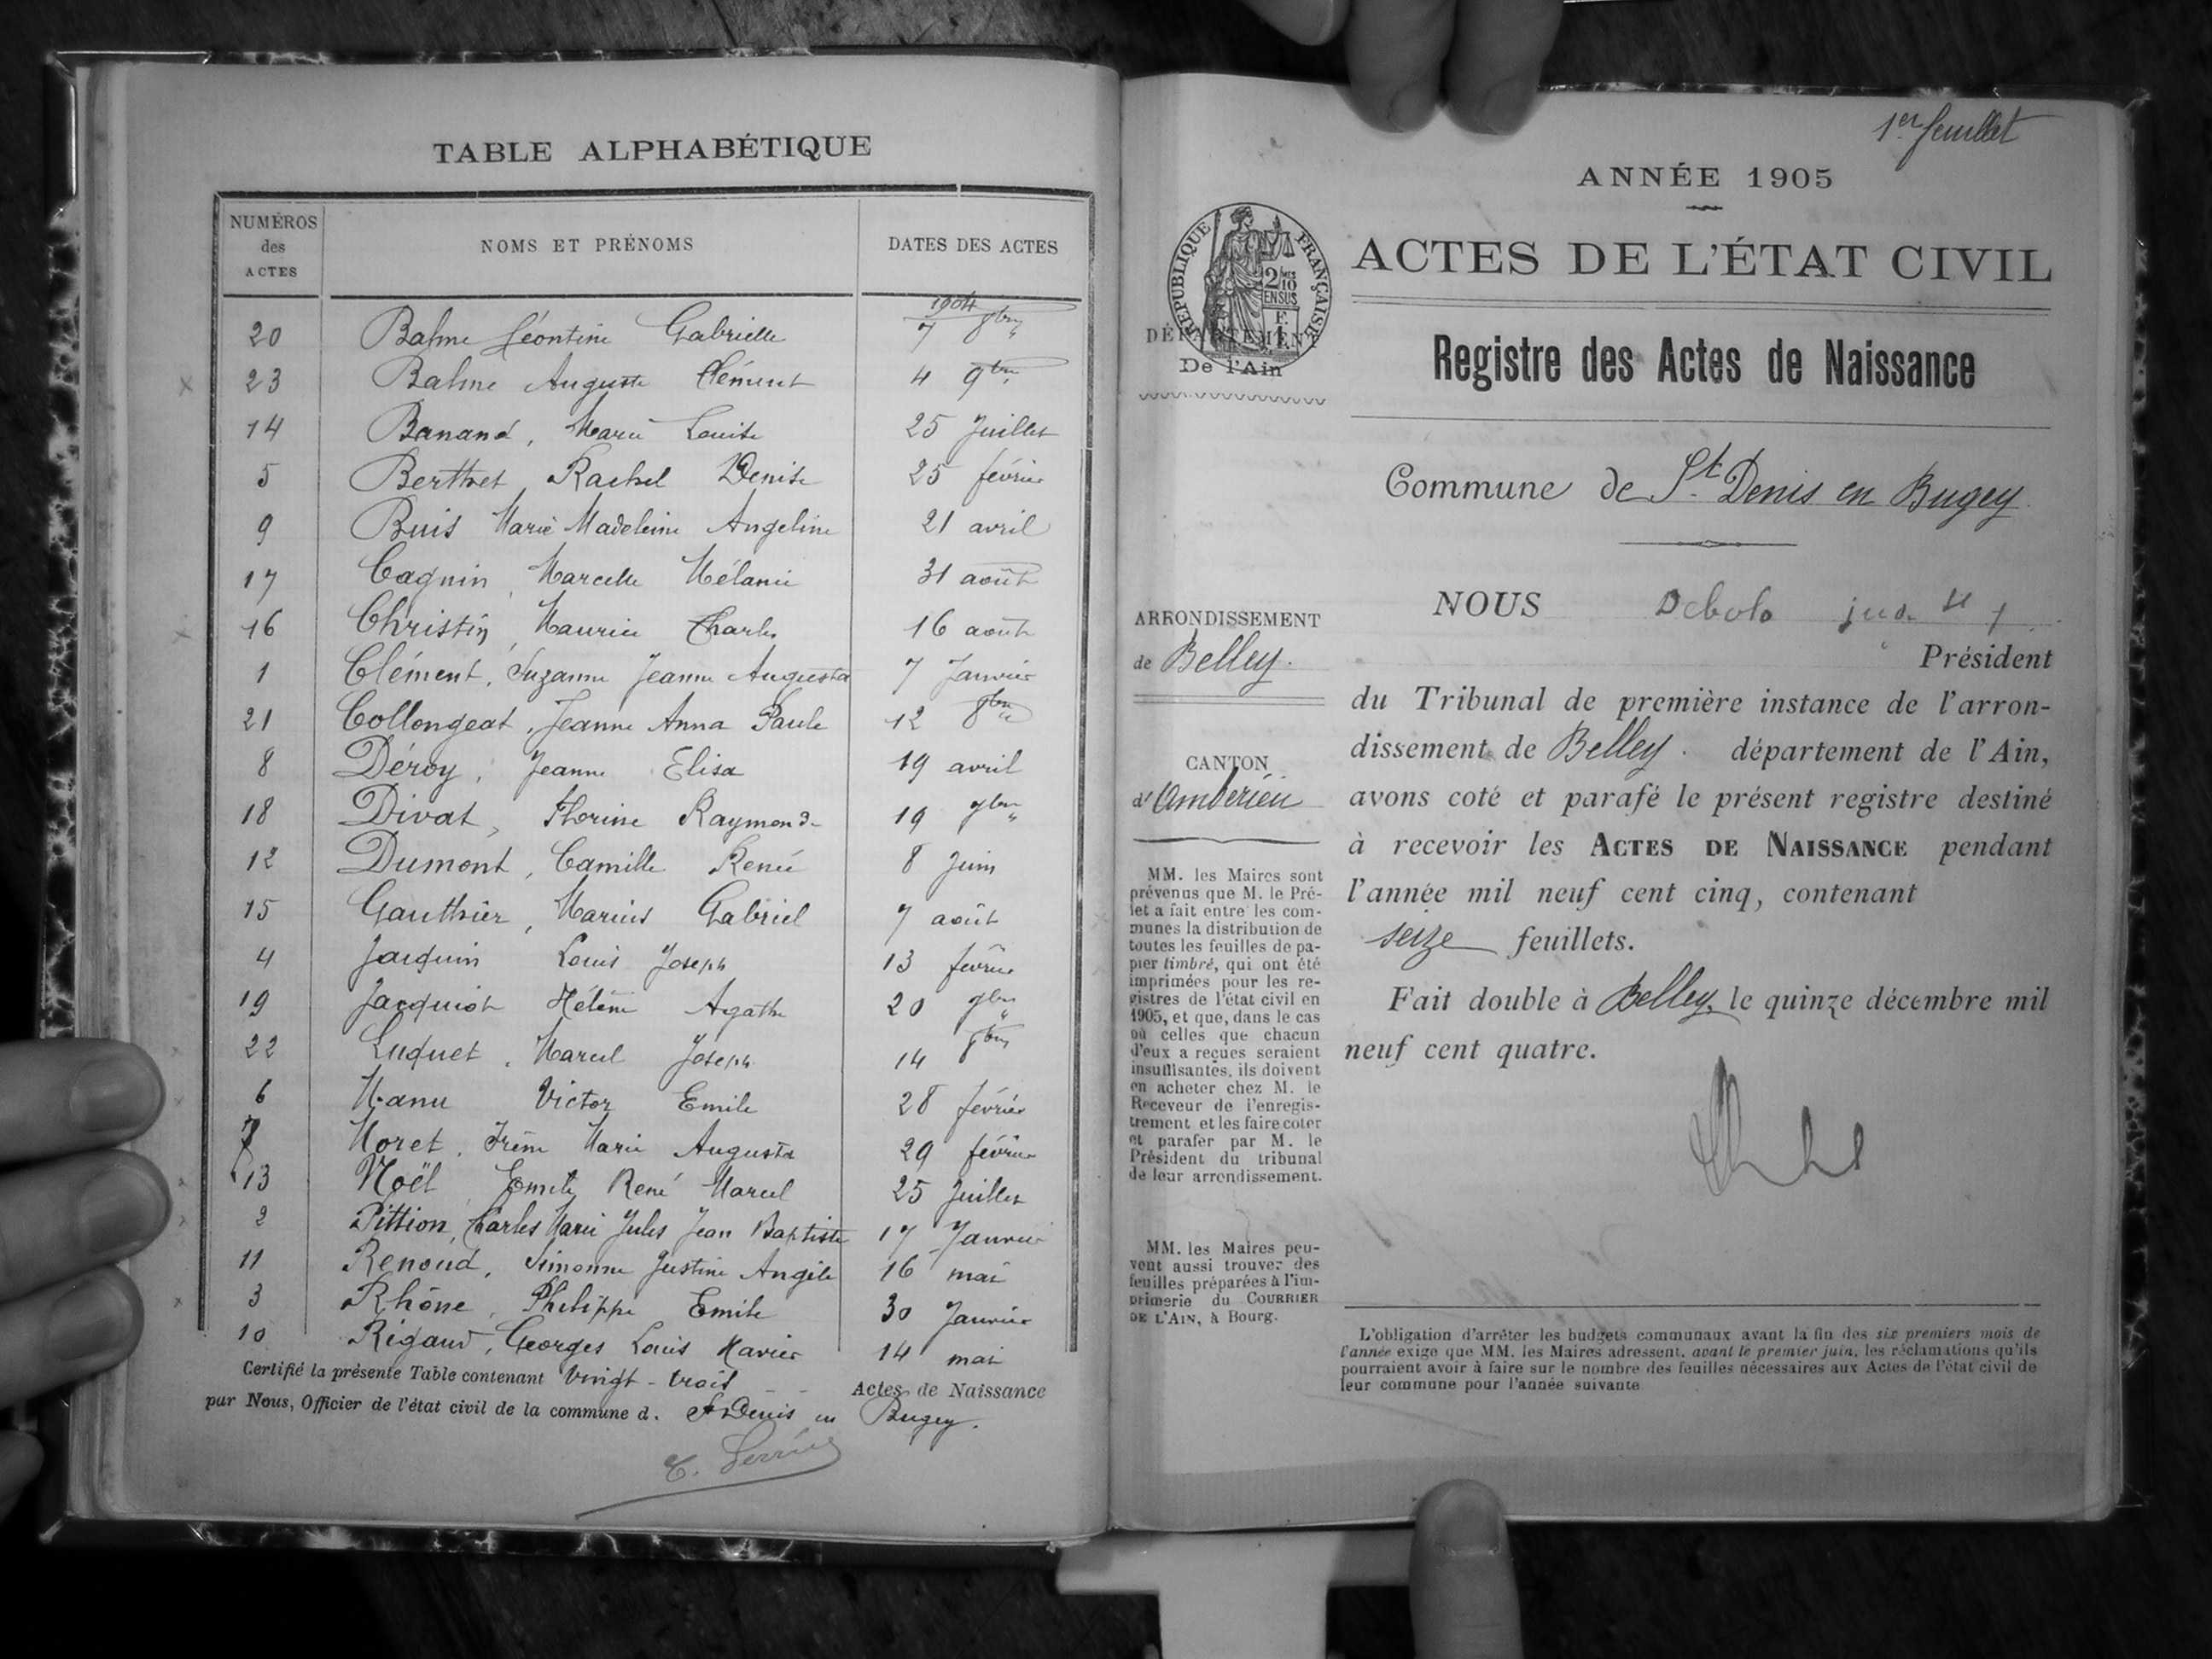 TABLE ALPHABÉTIQUE
NUMÉROS des ACTES NOMS ET PRÉNOMS DATES DES ACTES
1904
20 Balme Léontine Gabrielle 7 8bre
23 Balme Auguste Clément 4 9bre
14 Banand, Marie Louise 25 Juillet
5 Berthet Rachel Denise 25 février
9 Buis Marie Madeleine Angeline 21 avril
17 Cagnin, Marcelle Mélanie 31 août
16 Christin, Maurice Charles 16 août
1 Clément, Suzanne Jeanne Augusta 7 Janvier
21 Collongeat, Jeanne Anna Paule 12 8bre
8 Déroy, Jeanne Elisa 19 avril
18 Divat, Florine Raymonde 19 7bre
12 Dumont, Camille René 8 Juin
15 Gauthier, Marius Gabriel 7 août
4 Jacquin Louis Joseph 13 février
19 Jacquiot Hélène Agathe 20 7bre
22 Luquet, Marcel Joseph 14 8bre
6 Manu Victor Emile 28 février
7 Moret, Irène Marie Augusta 29 février
13 Noël Emile René Marcel 25 Juillet
2 Pittion, Charles Marie Jules Jean Baptiste 17 Janvier
11 Renoud, Simonne Justine Angèle 16 mai
3 Rhône, Philippe Emile 30 Janvier
10 Rigaud, Georges Louis Xavier 14 mai
Certifié la présente Table contenant Vingt-trois Actes de Naissance
par Nous, Officier de l'état civil de la commune d. St Denis en Bugey.
1er feuillet
ANNÉE 1905
ACTES DE L'ÉTAT CIVIL
RÉPUBLIQUE FRANÇAISE
DÉPARTEMENT
De l'Ain
Registre des Actes de Naissance
Commune de St Denis en Bugey
ARRONDISSEMENT
de Belley.
CANTON
d'Ambérieu
MM. les Maires sont
prévenus que M. le Pré-
fet a fait entre les com-
munes la distribution de
toutes les feuilles de pa-
pier timbré, qui ont été
imprimées pour les re-
gistres de l'état civil en
1905, et que, dans le cas
où celles que chacun
d'eux a reçues seraient
insuffisantes, ils doivent
en acheter chez M. le
Receveur de l'enregis-
trement et les faire coter
et parafer par M. le
Président du tribunal
de leur arrondissement.
MM. les Maires peu-
vent aussi trouver des
feuilles préparées à l'im-
primerie du COURRIER
DE L'AIN, à Bourg.
NOUS
Président
du Tribunal de première instance de l'arron-
dissement de Belley. département de l'Ain,
avons coté et parafé le présent registre destiné
à recevoir les ACTES DE NAISSANCE pendant
l'année mil neuf cent cinq, contenant
seize feuillets.
Fait double à Belley, le quinze décembre mil
neuf cent quatre.
L'obligation d'arrêter les budgets communaux avant la fin des six premiers mois de
l'année exige que MM. les Maires adressent, avant le premier juin, les réclamations qu'ils
pourraient avoir à faire sur le nombre des feuilles nécessaires aux Actes de l'état civil de
leur commune pour l'année suivante